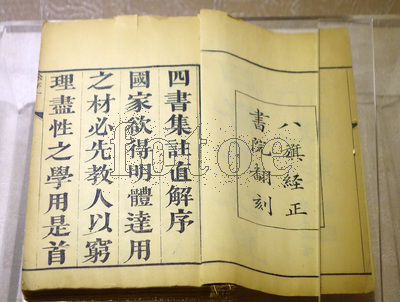 八旗経正
書院翻刻
四書集註直解序
國家欲得明體達用
之材必先教人以窮
理盡性之學用是首
fotoe